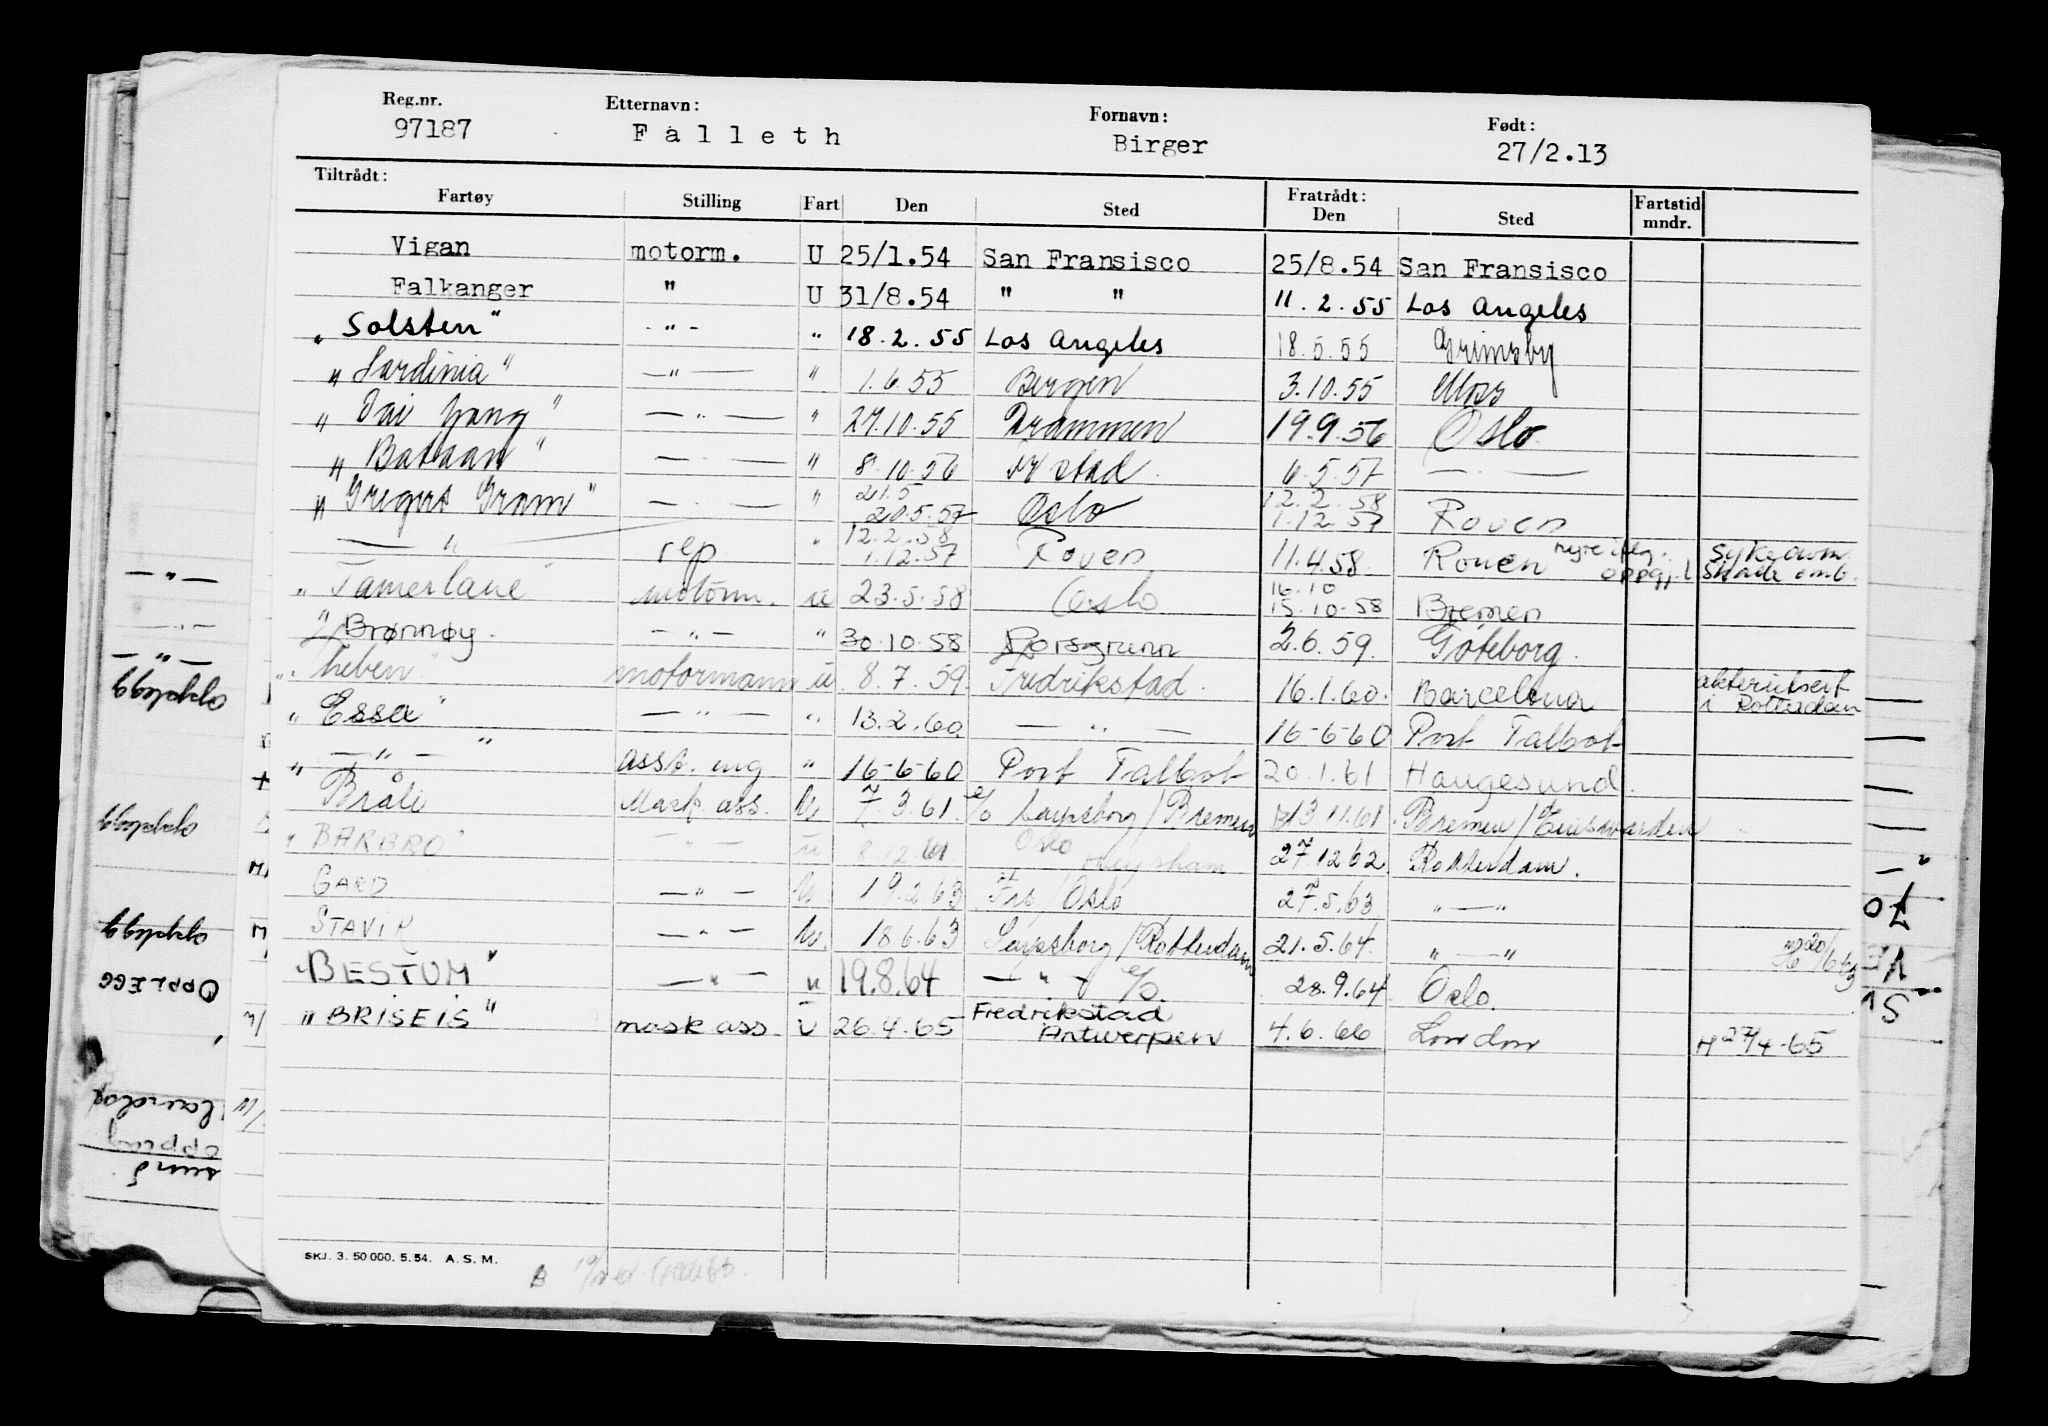 Reg.nr. Etternavn: Fornavn: Født:
97187 Fålleth Birger 27/2.13
Tiltrådt: Fratrådt: Fartstid
Fartøy Stilling Fart Den Sted Den Sted mndr.
Vigan motorm. U 25/1.54 San Fransisco 25/8.54 San Fransisco
Falkanger " U 31/8.54 " " 11.2.55 Los Angeles
"Solsten" -"- " 18.2.55 Los Angeles 18.5.55 Grimsby
"Sardinia" —"— " 1.6.55 Bergen 3.10.55 Moss
"Tai Yang" —"— " 27.10.55 Drammen 19.9.56 Oslo
"Bataan" —"— " 8.10.56 6.5.57 —"—
21.5 12.2.58
"Gregers Gram" —"— " 20.5.57 Oslo 1.12.57 Rouen
12.2.58
—"— rep " 1.12.57 Rouen 11.4.58 Rouen
"Tamerlane" motorm. u 23.5.58 Oslo 16.10
15.10.58 Bremen
"Brønnøy —"— " 30.10.58 Porsgrunn 2.6.59. Göteborg.
"heben" motormann u 8.7.59. Fredrikstad. 16.1.60. Barcelona akterutseilt i Rotterdam
"Essa" —"— " 13.2.60. —"— 16-6-60 Port Talbot
"—"—" asst. ing " 16-6-60 Port Talbot 20.1.61 Haugesund.
Bråli Mask. ass. U 7.3.61. Sarpsborg/Bremen 13.11.61. Bremen/Einswarden
"BARBRO" —"— u 8.12.61. Oslo Heysham 27.12.62 Rotterdam.
GARD —"— U 19.2.63 /Oslo 27.5.63 "—"
STAVIK —"— U. 18.6.63 Sarpsborg/Rotterdam 21.5.64. "—" 20/6 63
"BESTUM" —"— u 19.8.64 —"— 28.9.64 Oslo.
"BRISEIS" mask ass. U 26.4.65 Fredrikstad
Antwerpen 4.6.66 London H 27/4-65
SKJ. 3. 50 000. 5. 54. A. S. M.
opplegg
opplegg
opplegg
OPPLEGG